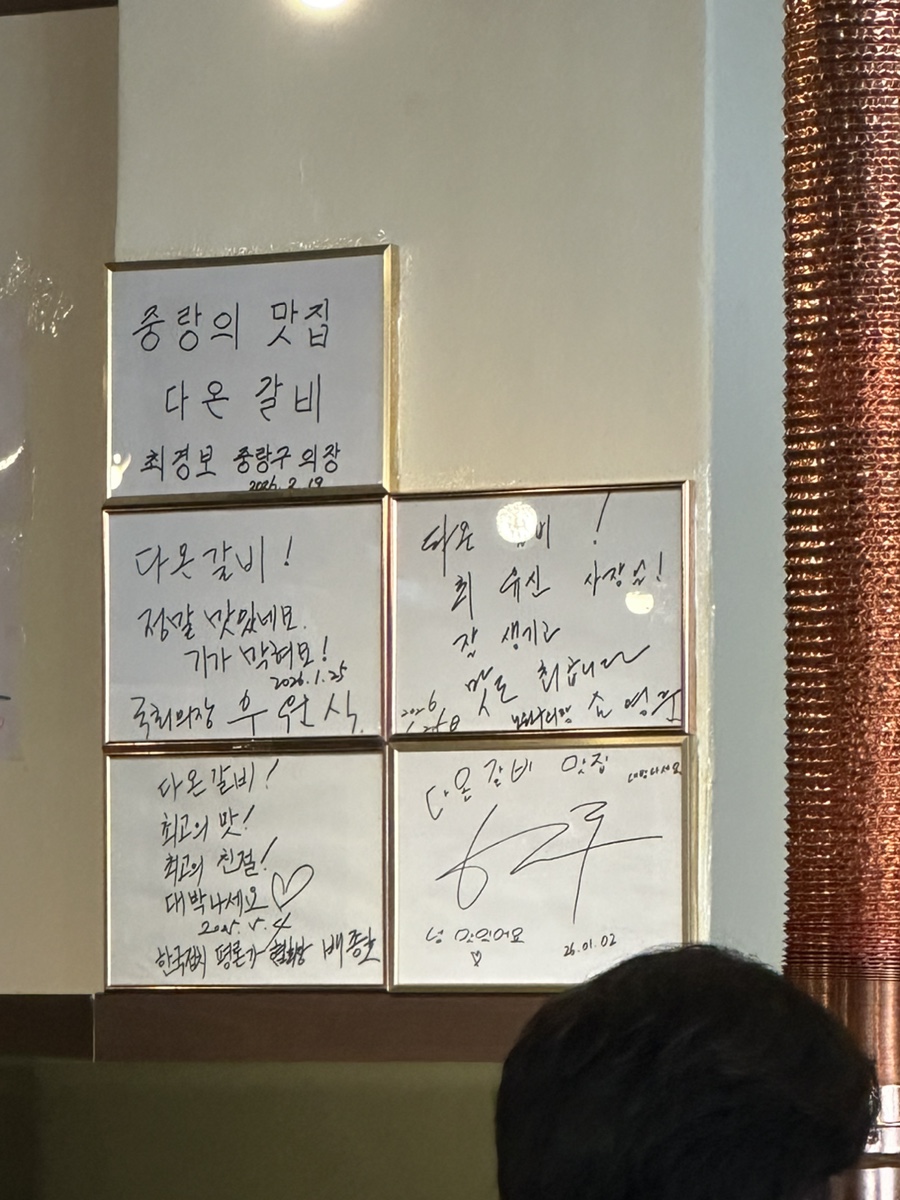 중랑의 맛집
다온 갈비
최경보 중랑구 의장
2026. 2. 19
다온갈비!
정말 맛있네요.
기가 막혀요!
2026.1.25
국회의장 우원식.
다온 비!
최 유신 사장님!
잘 생기고
맛도 최고입니다
2026
다온갈비!
최고의 맛!
최고의 친절!
대박나세요♡
한국정치 평론가 협회장 배종호
다온 갈비 맛집
대박나세요
넘 맛있어요
♡
26.01.02